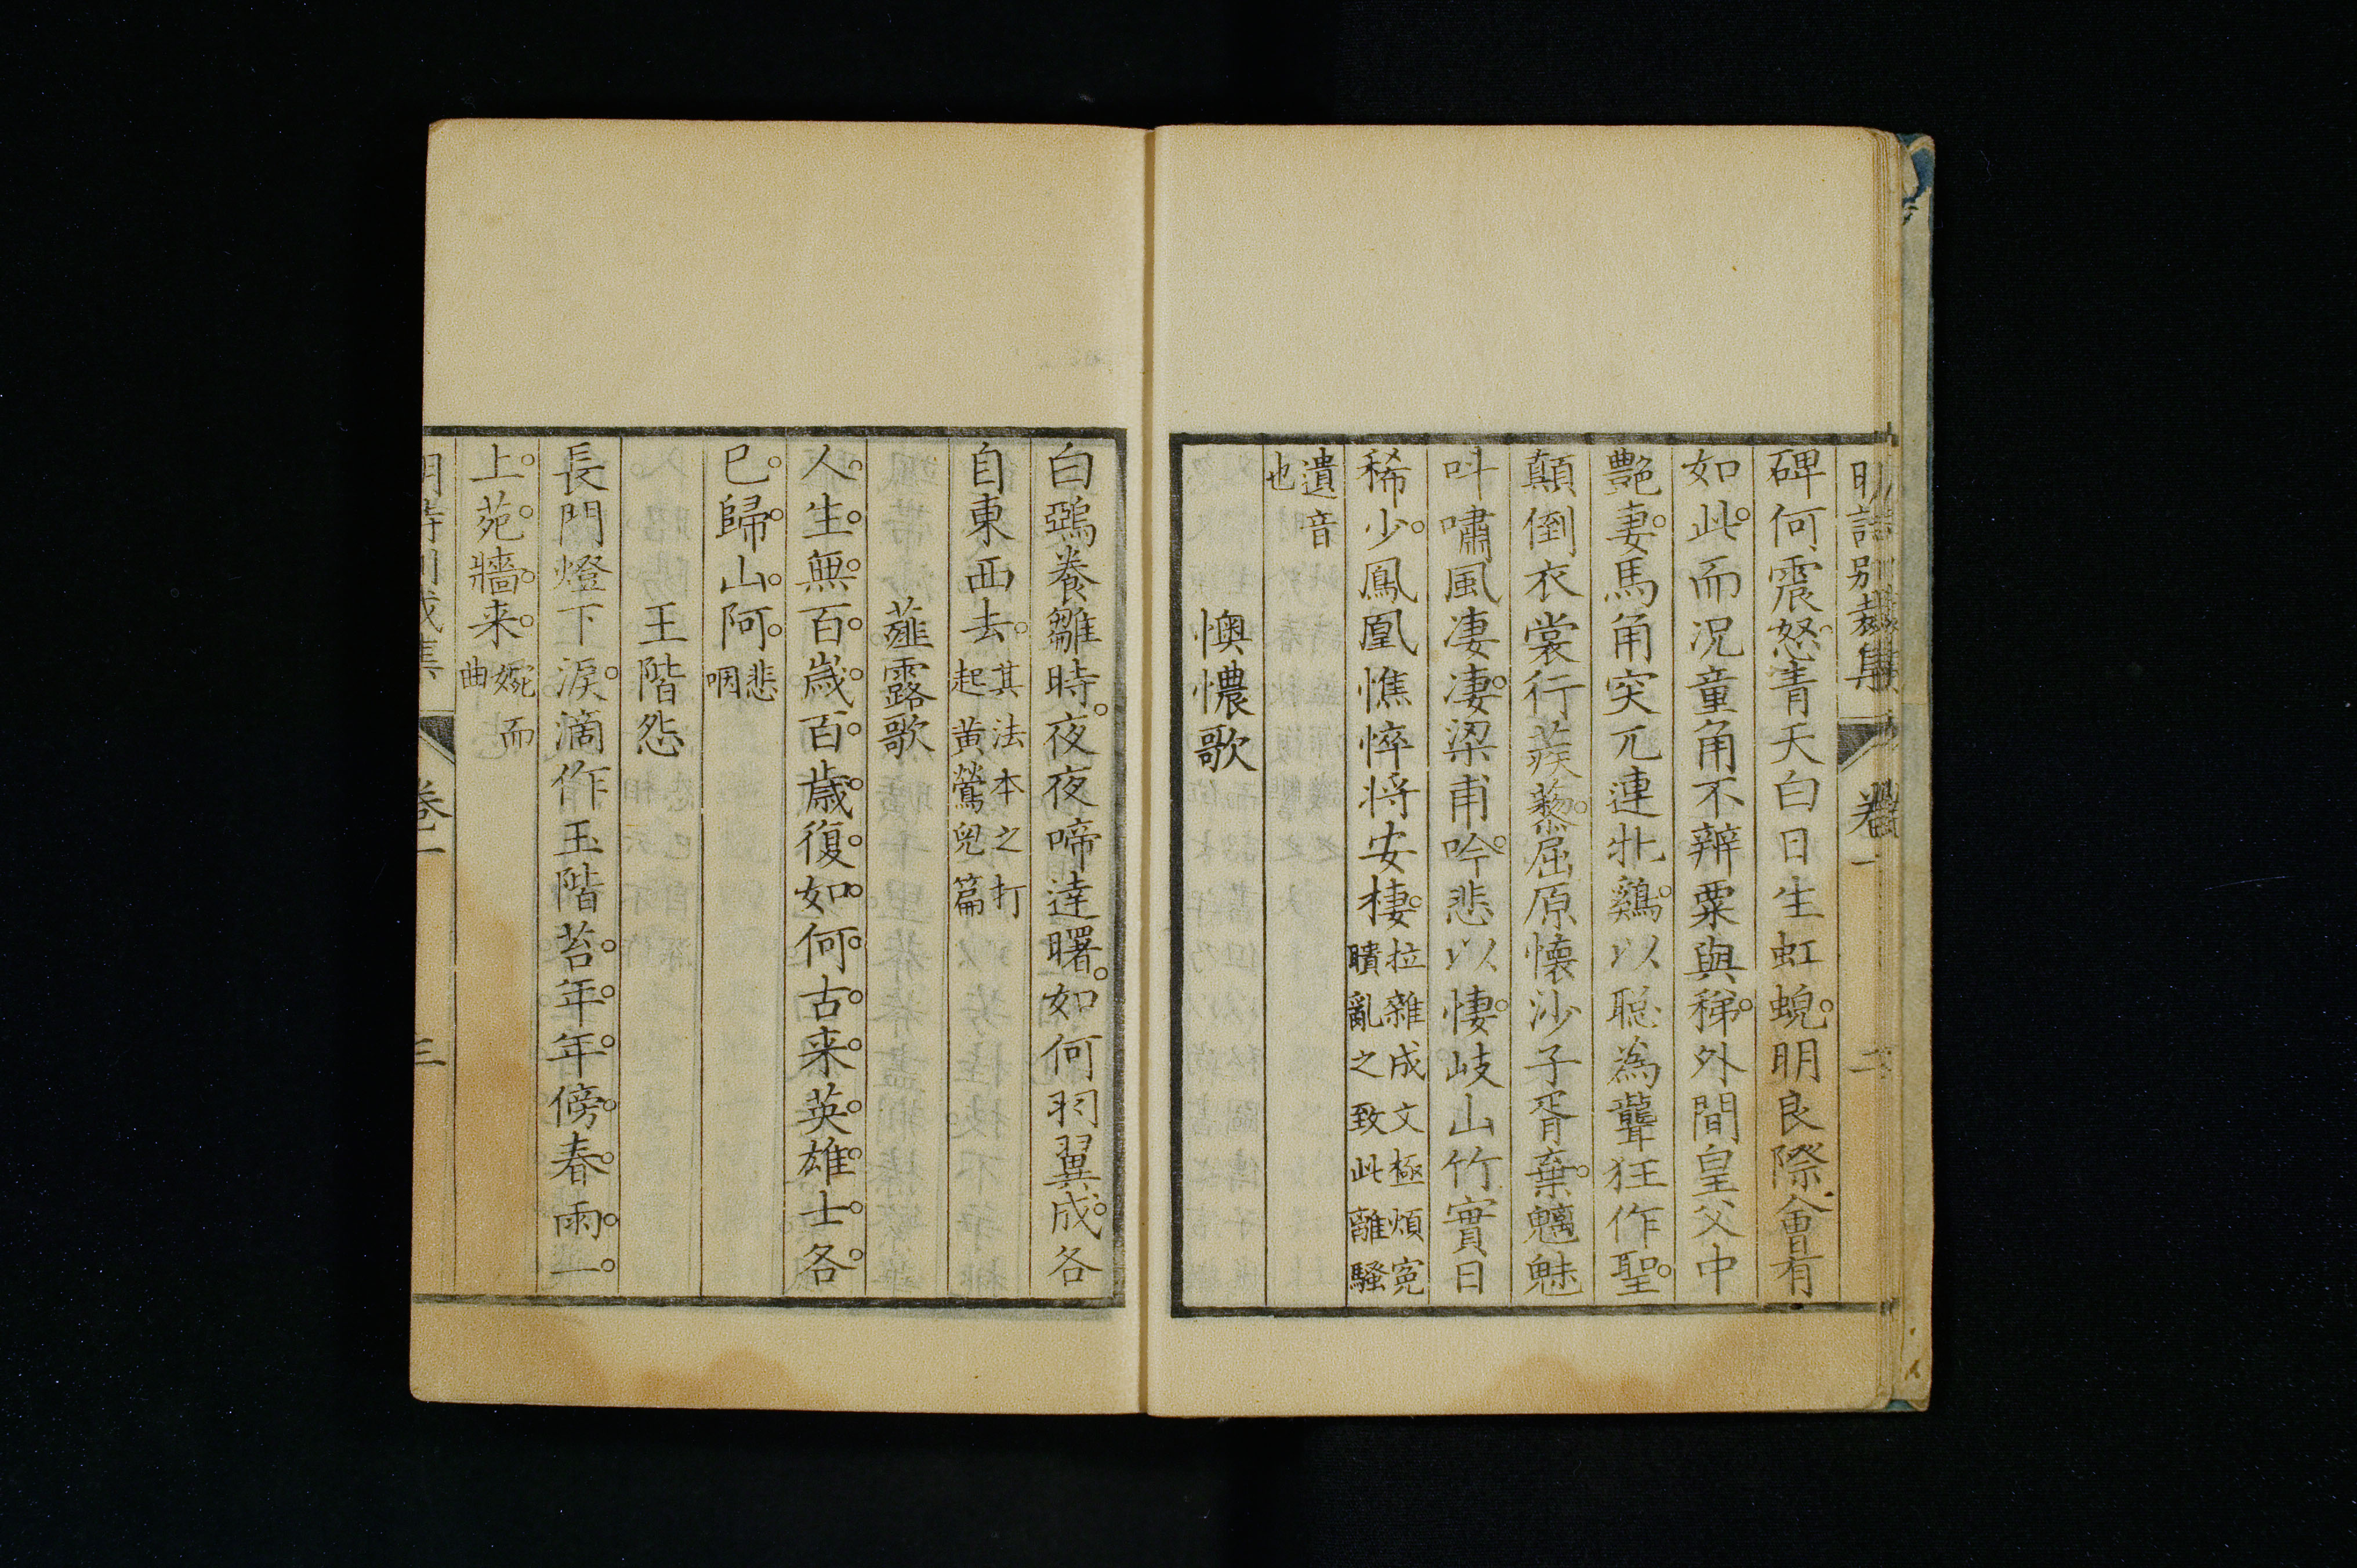 明詩别裁集 卷一 二
碑何震怒青天白日生虹蜺明良際會有
如此而况童角不辨粟與稊外間皇父中
艷妻馬角突兀連牝鷄以聪為聾狂作聖
顛倒衣裳行蒺藜屈原懷沙子胥棄魑魅
呌嘯風凄凄梁甫吟悲以悽岐山竹實日
稀少鳳凰憔悴将安棲拉雜成文極煩冤
瞆亂之致此離騷
遺音
也
懊憹歌
白鵶養雛時夜夜啼達曙如何羽翼成各
自東西去其法本之打
起黄鶯兒篇
薤露歌
人生無百歳百歳復如何古来英雄士各
已歸山阿悲
咽
王階怨
長門燈下淚滴作玉階苔年年傍春雨一
上苑牆来婉而
曲
明詩别裁集 卷一 三